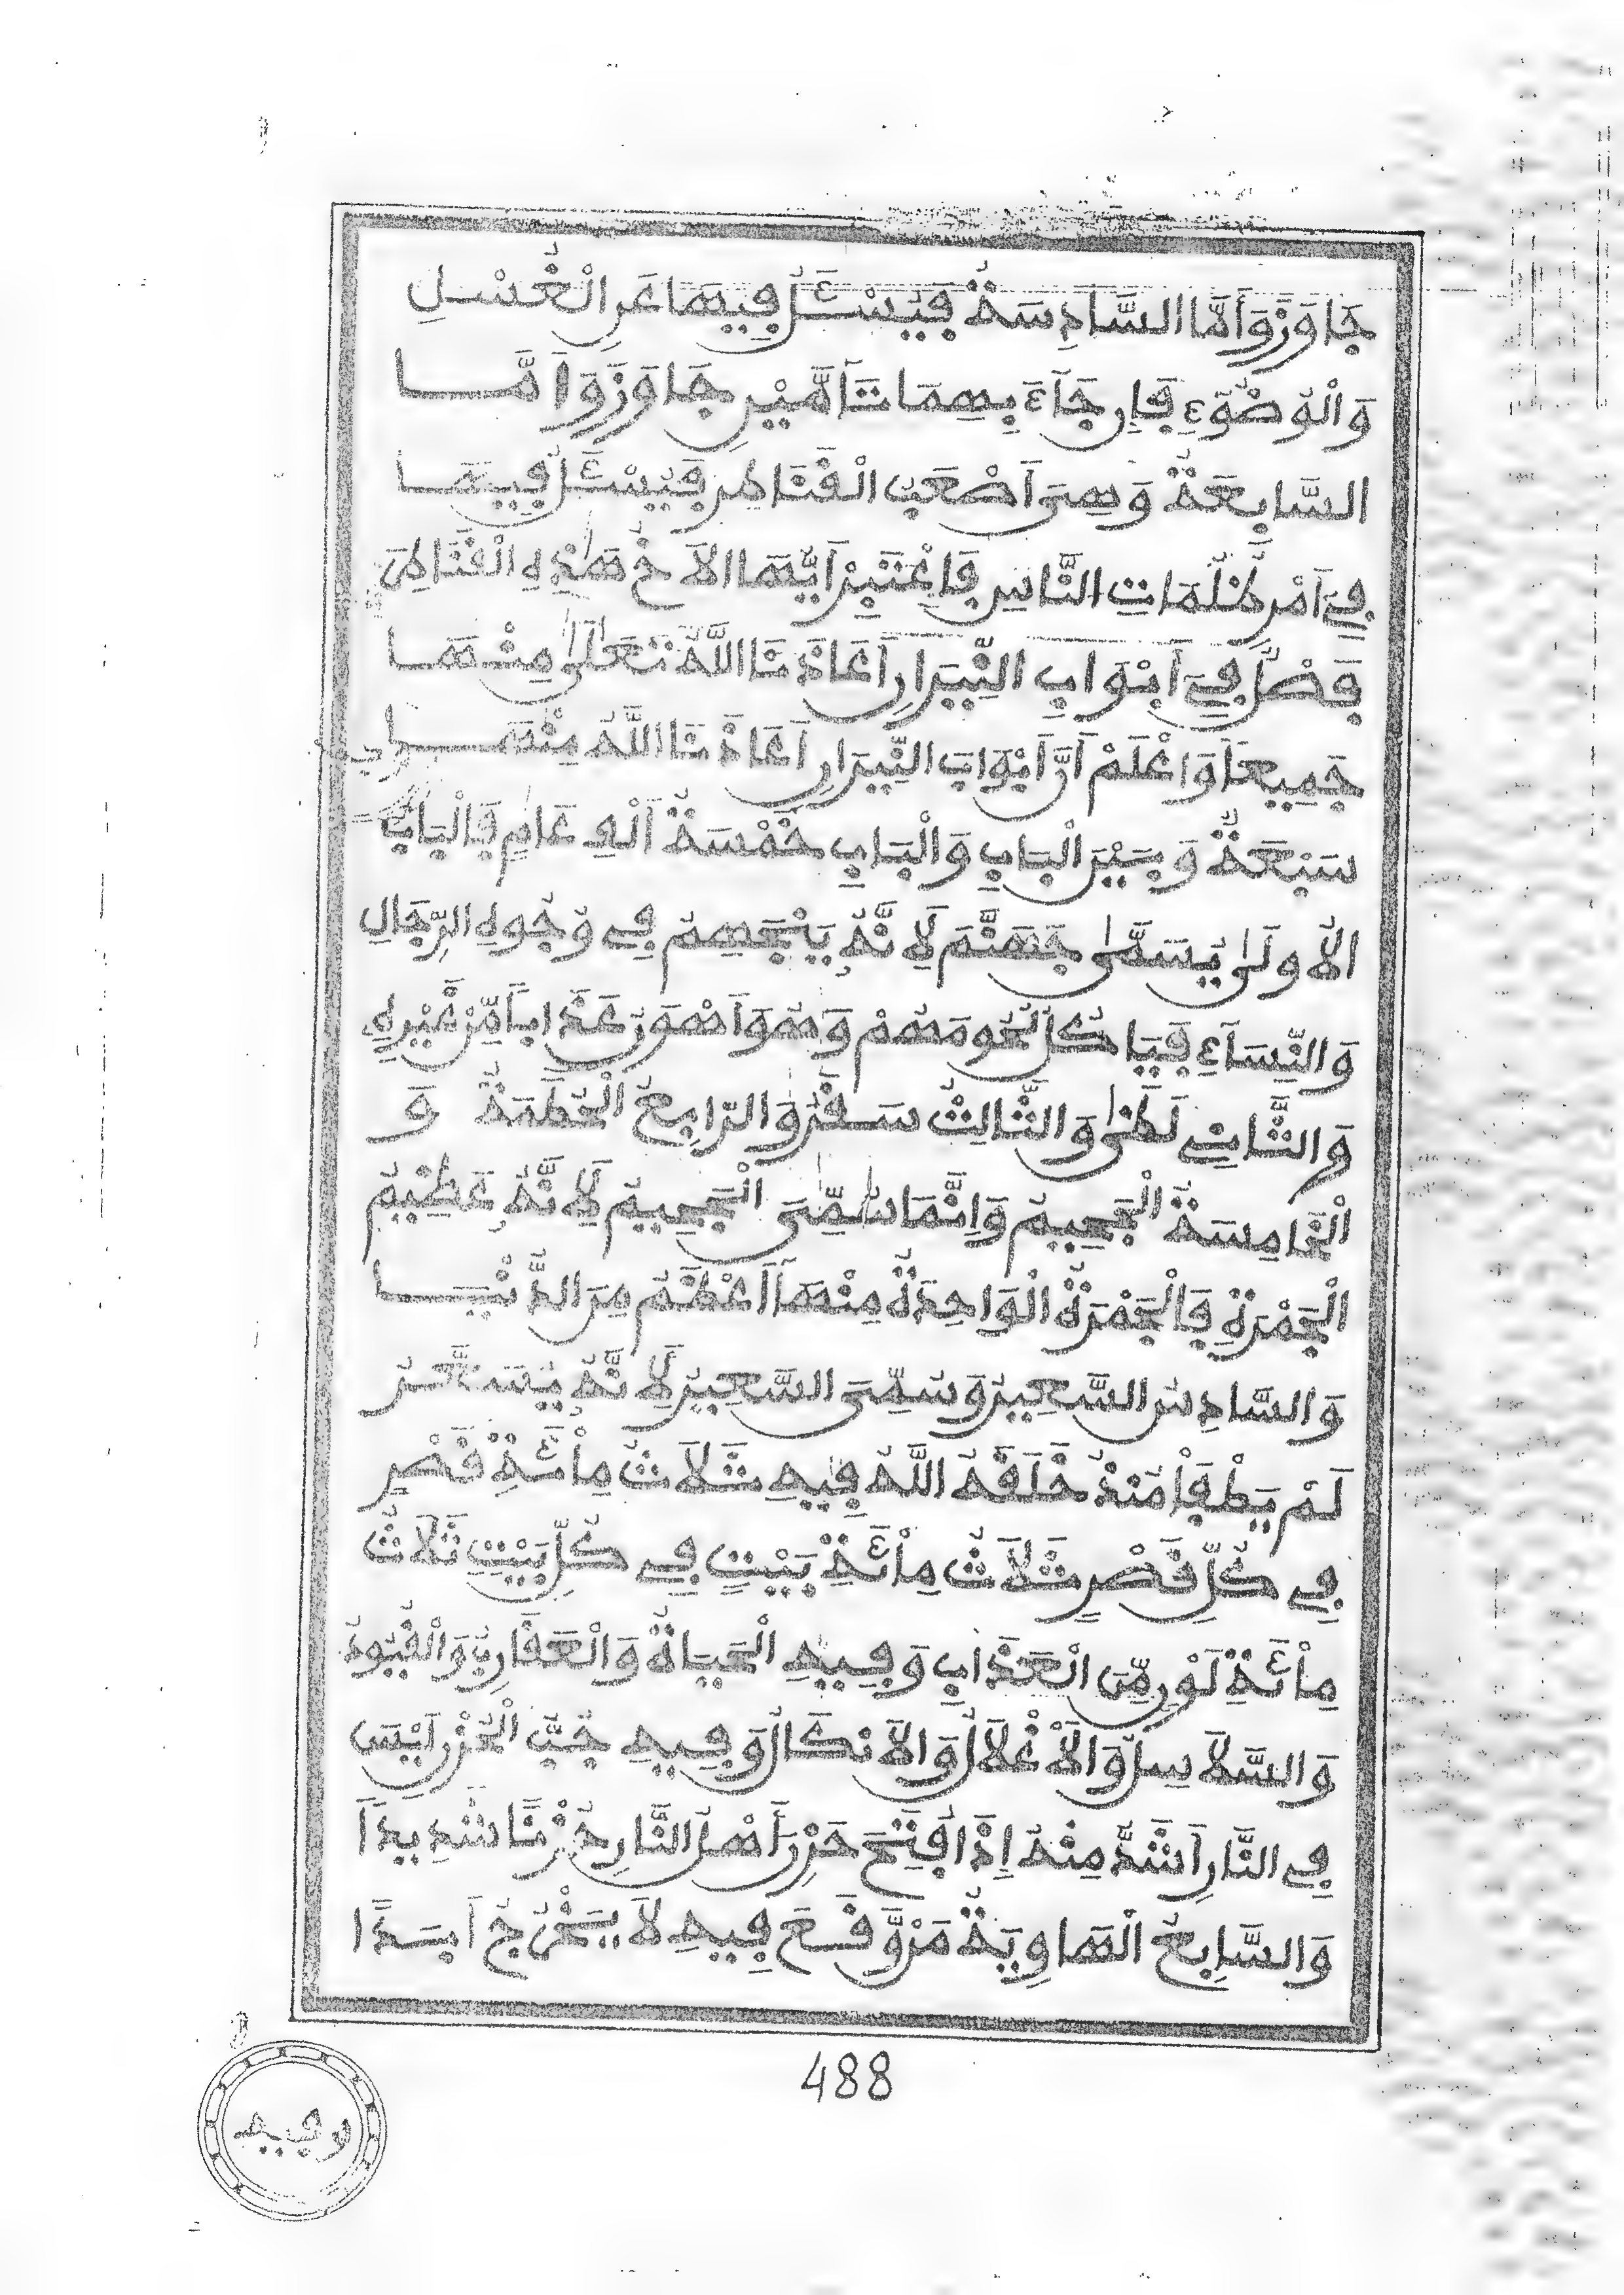 جَاوَزَ وَأَمَّا السَّادِسَةُ فَيُسْـَٔلُ فِيهَا عَنِ الْغُسْلِ
وَالْوُضُوٓءِ فَإِن جَآءَ بِهِمَا تَآمَّيْنِ جَاوَزَ وَأَمَّا
السَّابِعَةُ وَهِىَ أَصْعَبُ الْقَنَاطِرِ فَيُسْـَٔلُ فِيهَا
فِىٓ أَمْرِ ظُلُمَاتِ النَّاسِ فَاعْتَبِرْ أَيُّهَا الْأَخُ هَٰذِهِ الْقَنَاطِرَ
فَصْلٌ فِىٓ أَبْوَابِ النِّيرَانِ أَعَاذَنَا اللَّهُ تَعَالَىٰ مِنْهَا
جَمِيعًا وَاعْلَمْ أَنَّ أَبْوَابَ النِّيرَانِ أَعَاذَنَا اللَّهُ مِنْهَا
سَبْعَةٌ وَبَيْنَ الْبَابِ وَالْبَابِ خَمْسَةُ أَلْفِ عَامٍ فَالْبَابُ
الْأُولَىٰ يُسَمَّىٰ جَهَنَّمَ لِأَنَّهُ يَتَجَهَّمُ فِى وُجُوهِ الرِّجَالِ
وَالنِّسَآءِ فَيَاكُلُ لُحُومَهُمْ وَهُوَ أَهْوَنُ عَذَابًا مِّنْ غَيْرِهِ
وَالثَّانِى لَظَىٰ وَالثَّالِثُ سَقَرُ وَالرَّابِعُ الْحُطَمَةُ وَ
الْخَامِسَةُ الْجَحِيمُ وَإِنَّمَا سُمِّىَ الْجَحِيمُ لِأَنَّهُ عَظِيمُ
الْجَمْرَةِ فَالْجَمْرَةُ الْوَاحِدَةُ مِنْهَآ أَعْظَمُ مِنَ الدُّنْيَا
وَالسَّادِسُ السَّعِيرُ وَسُمِّىَ السَّعِيرُ لِأَنَّهُ يُسَعَّرُ
لَمْ يَطْفَأْ مُنْذُ خَلَقَهُ اللَّهُ فِيهِ ثَلَاثُ مِاْئَةِ قَصْرٍ
فِى كُلِّ قَصْرٍ ثَلَاثُ مِاْئَةِ بَيْتٍ فِى كُلِّ بَيْتٍ ثَلَاثُ
مِاْئَةِ لَوْنٍ مِّنَ الْعَذَابِ وَفِيهِ الْحَيَاةُ وَالْعَقَارِبُ وَالْقُيُودُ
وَالسَّلَاسِلُ وَالْأَغْلَالُ وَالْأَنكَالُ وَفِيهِ جُبُّ الْحُزْنِ لَيْسَ
فِى النَّارِ أَشَدُّ مِنْهُ إِذَا فُتِحَ حَزِنَ أَهْلُ النَّارِ حُزْنًا شَدِيدًا
وَالسَّابِعُ الْهَاوِيَةُ مَنْ وَّقَعَ فِيهِ لَا يَخْرُجُ أَبَدًا
488
وفيه